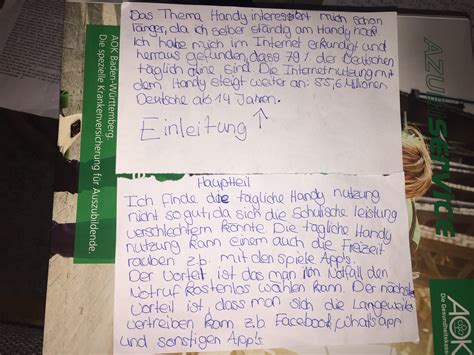 Das Thema Handy interessiert mich schon
länger, da ich selber ständig am Handy hock
Ich habe mich im Internet erkundigt und
herraus gefunden, dass 79 % der Deutschen
täglich oline sind. Die Internetnutzung mit
dem Handy steigt weiter an: 55,6 Millionen
Deutsche ab 14 Jahren.
Einleitung
Hauptteil
Ich finde die tägliche Handy nutzung
nicht so gut, da sich die schulische leistung
verschlechtern könnte. Die tägliche Handy
nutzung kann einem auch die Frezeit
rauben z.b. mit den spiele App's.
Der Vorteil ist das man im Notfall den
Notruf kostenlos wählen kann. Der nächste
Vorteil ist, dass man sich die Langeweile
vertreiben kann z.b. Facebook, Whatsapp
und sonstigen App's.
AOK Baden-Württemberg.
Die spezielle Krankenversicherung für Auszubildende.
AZUBI SERVICE
AOK
Die Gesundheitskasse